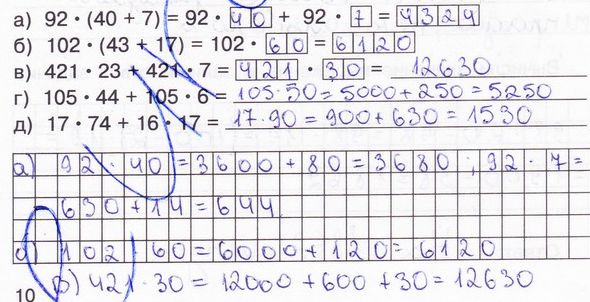 а) 92 · (40 + 7) = 92 · 40 + 92 · 7 = 4324
б) 102 · (43 + 17) = 102 · 60 = 6120
в) 421 · 23 + 421 · 7 = 421 · 30 = 12630
г) 105 · 44 + 105 · 6 = 105·50 = 5000 + 250 = 5250
д) 17 · 74 + 16 · 17 = 17·90 = 900 + 630 = 1530
а) 92 · 40 = 3600 + 80 = 3680 ; 92 · 7 =
630 + 14 = 644
б) 102 · 60 = 6000 + 120 = 6120
в) 421 · 30 = 12000 + 600 + 30 = 12630
10